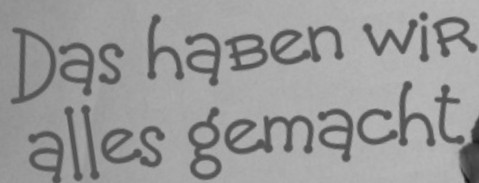 Das haben wir
alles gemacht